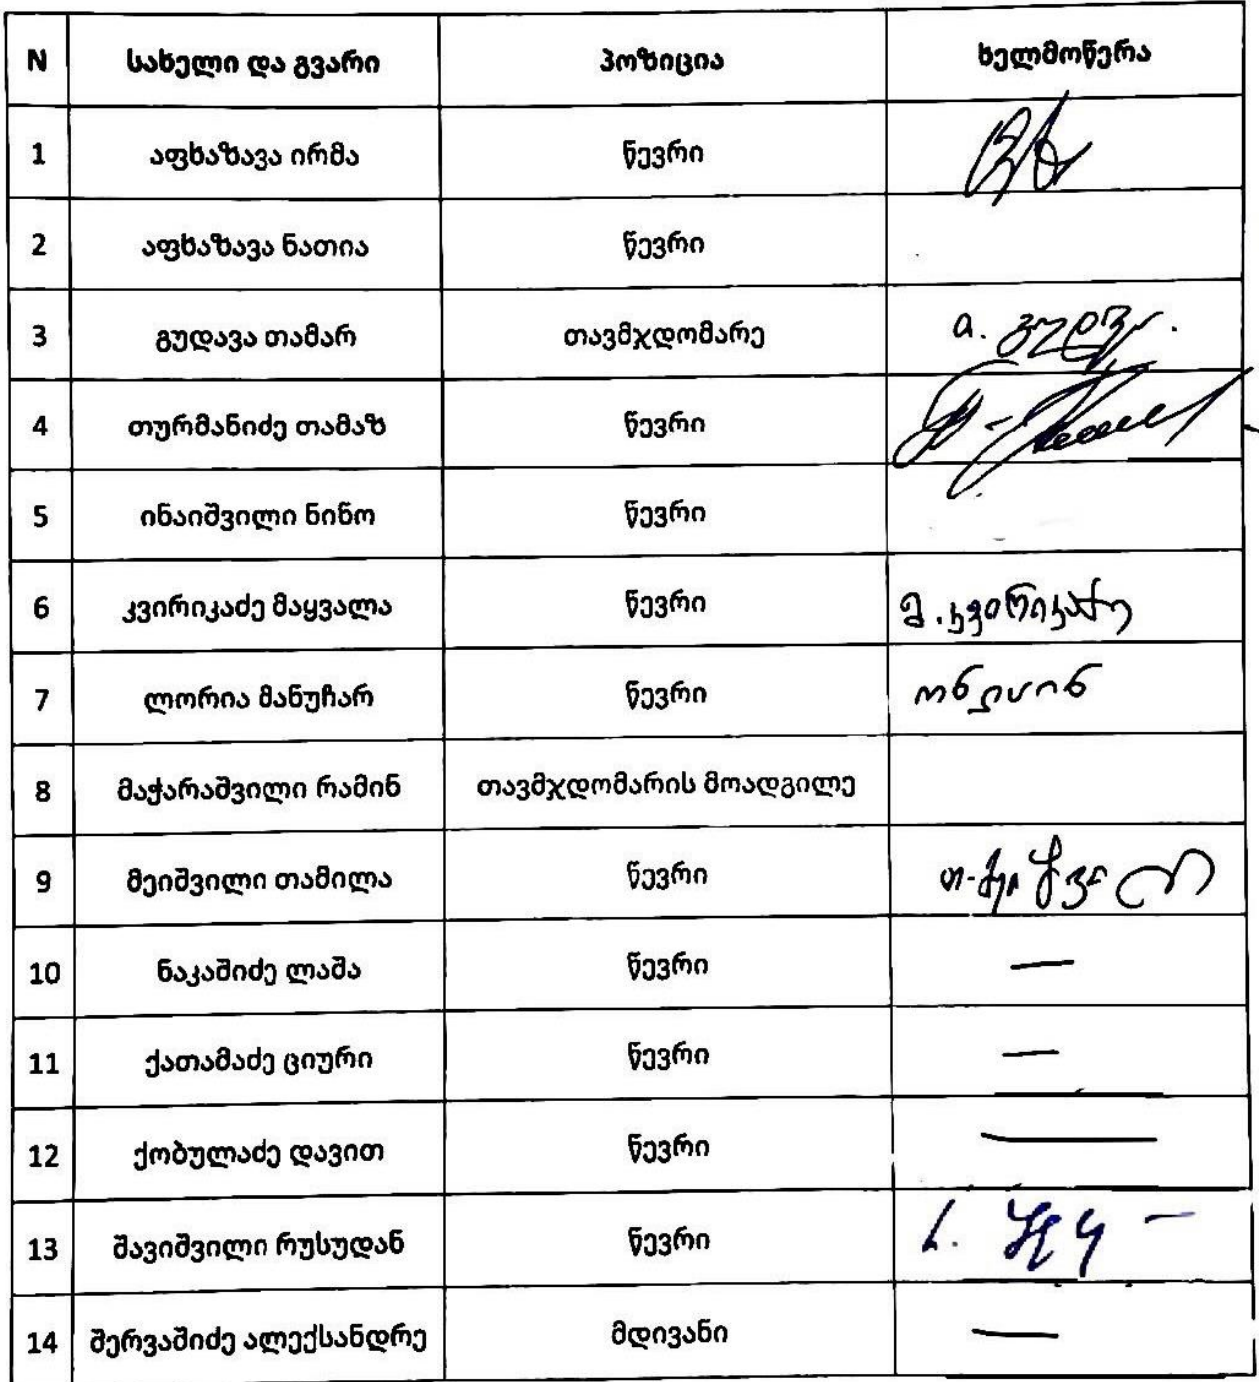 N სახელი და გვარი პოზიცია ხელმოწერა
1 აფხაზავა ირმა წევრი
2 აფხაზავა ნათია წევრი
3 გუდავა თამარ თავმჯდომარე
4 თურმანიძე თამაზ წევრი
5 ინაიშვილი ნინო წევრი
6 კვირიკაძე მაყვალა წევრი მ. კვირიკაძე
7 ლორია მანუჩარ წევრი
8 მაჭარაშვილი რამინ თავმჯდომარის მოადგილე
9 მეიშვილი თამილა წევრი
10 ნაკაშიძე ლაშა წევრი —
11 ქათამაძე ციური წევრი —
12 ქობულაძე დავით წევრი —
13 შავიშვილი რუსუდან წევრი
14 შერვაშიძე ალექსანდრე მდივანი —